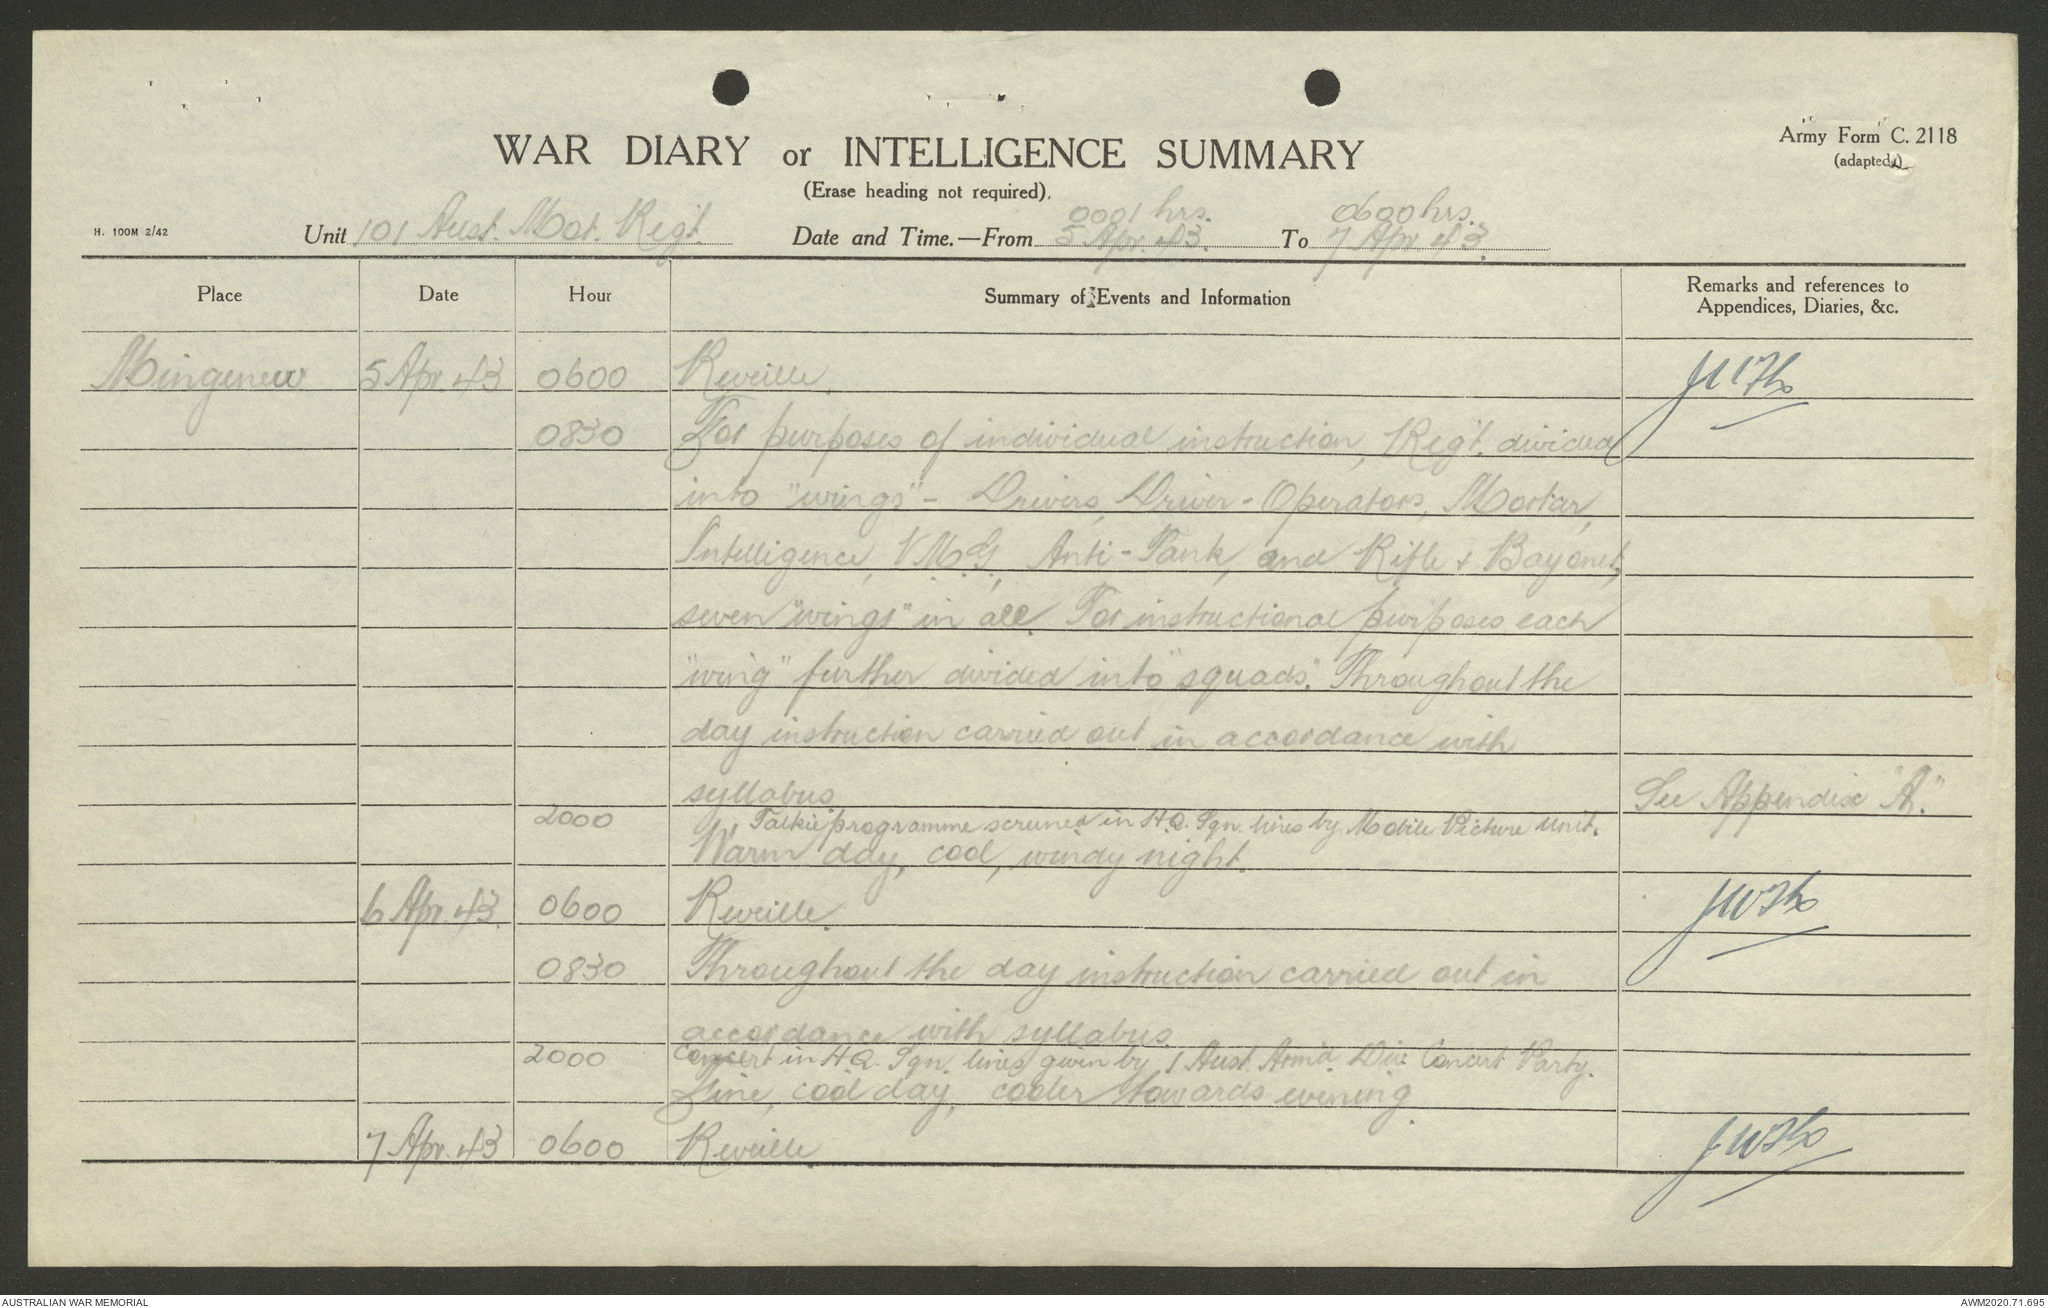 Army Form C. 2118
(adapted.)
WAR DIARY or INTELLIGENCE SUMMARY
(Erase heading not required).
H. 100M 2/42
Unit 101 Aust. Mot. Regt. Date and Time.—From 0001 hrs. 5 Apr. 43. To 0600 hrs. 7 Apr. 43.
Place Date Hour Summary of Events and Information Remarks and references to Appendices, Diaries, &c.
Mingenew 5 Apr. 43 0600 Reveille.
0830 For purposes of individual instruction, Regt. divided
into "wings" - Drivers, Driver-Operators, Mortar,
Intelligence, V.M.G., Anti-Tank, and Rifle & Bayonet,
seven "wings" in all. For instructional purposes each
"wing" further divided into "squads". Throughout the
day instruction carried out in accordance with
syllabus. See Appendix "A."
2000 Talkie programme screened in H.Q. Sqn. lines by Mobile Picture Unit.
Warm day, cool, windy night.
6 Apr. 43. 0600 Reveille.
0830 Throughout the day instruction carried out in
accordance with syllabus.
2000 Concert in H.Q. Sqn. lines given by 1 Aust. Arm'd. Div. Concert Party.
Fine, cool day, cooler towards evening.
7 Apr. 43 0600 Reveille.
AUSTRALIAN WAR MEMORIAL
AWM2020.71.695